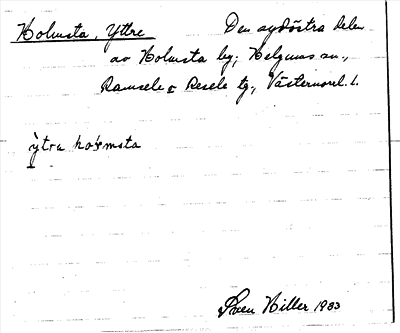 Holmsta, Yttre Den sydöstra delen
av Holmsta by; Helgums sn.,
Ramsele o Resele tg., Västernorrl. l.
ỳtra hoɫmsta
Sven Hiller 1983